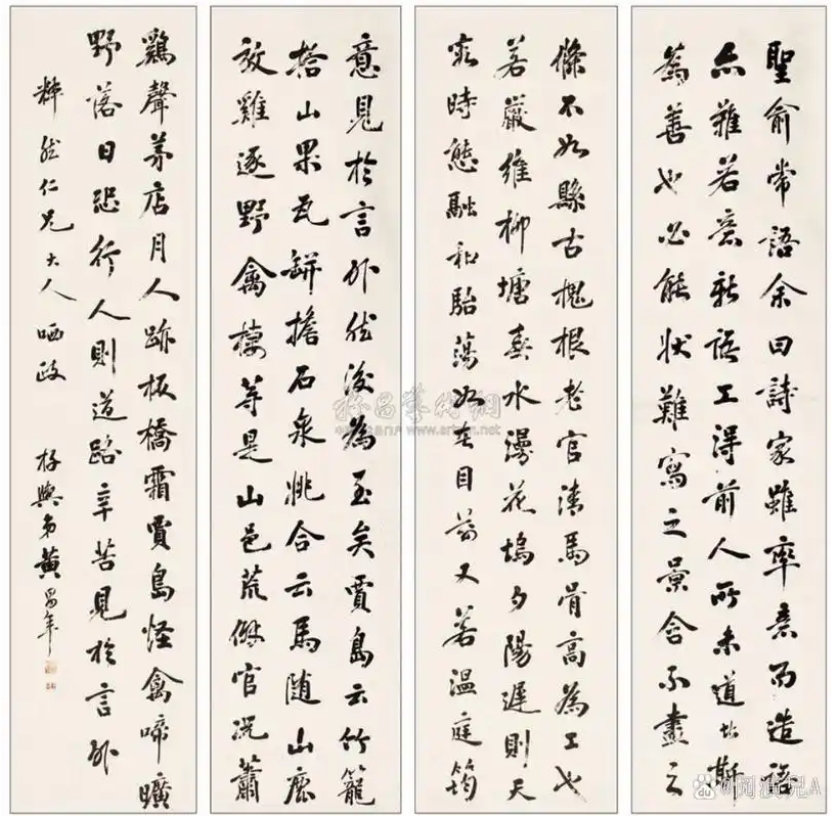 聖俞常語余曰詩家雖率意而造語
亦難若意新語工得前人所未道者斯
為善也必能狀難寫之景含不盡之
條不如縣古槐根老官清馬骨高為工也
若嚴維柳塘春水漫花塢夕陽遲則天
容時態融和駘蕩如在目前又若溫庭筠
意見於言外然後為至矣賈島云竹籠
拾山果瓦缾擔石泉姚合云馬隨山鹿
放雞逐野禽棲等是山邑荒僻官況蕭
鷄聲茅店月人跡板橋霜賈島怪禽啼曠
野落日恐行人則道路辛苦見於言外
然仁兄大人哂政 弟黃昌年
雅昌藝術網
www.artron.net